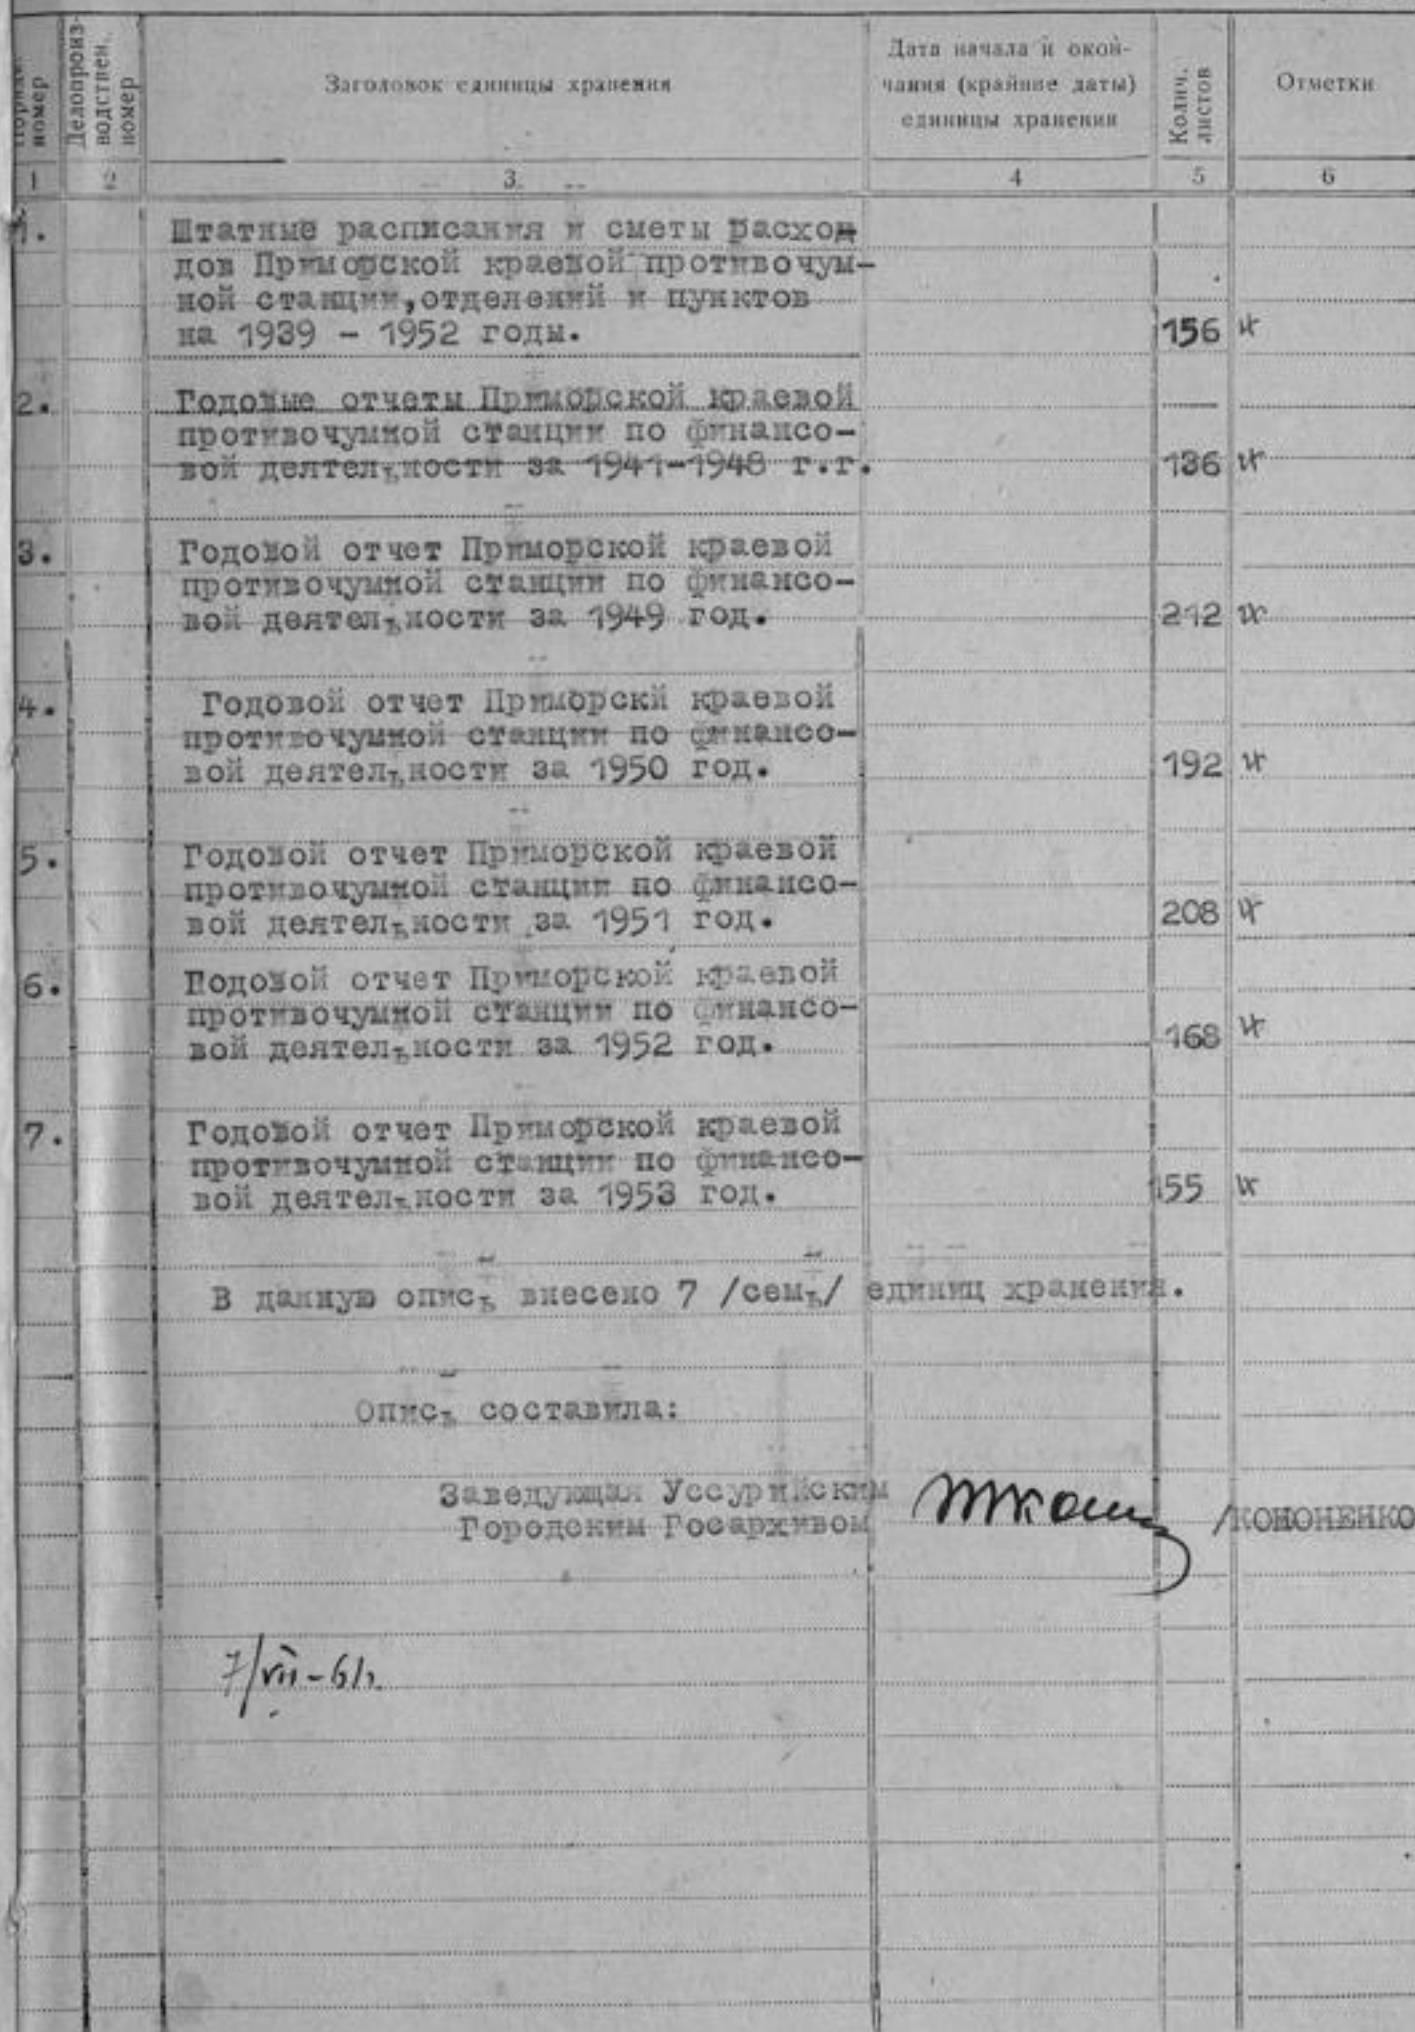 Порядк. номер
Делопроиз-
водствен.
номер
Заголовок единицы хранения
Дата начала и окон-
чания (крайние даты)
единицы хранения
Колич.
листов
Отметки
1 2 3. 4 5 6
1. Штатные расписания и сметы расход
дов Приморской краевой противочум-
ной станции, отделений и пунктов
на 1939 - 1952 годы. 156
2. Годовые отчеты Приморской краевой
противочумной станции по финансо-
вой деятельности за 1941-1948 г.г. 136
3. Годовой отчет Приморской краевой
противочумной станции по финансо-
вой деятельности за 1949 год. 212
4. Годовой отчет Приморскй краевой
противочумной станции по финансо-
вой деятельности за 1950 год. 192
5. Годовой отчет Приморской краевой
противочумной станции по финансо-
вой деятельности за 1951 год. 208
6. Подовой отчет Приморской краевой
противочумной станции по финансо-
вой деятельности за 1952 год. 168
7. Годовой отчет Приморской краевой
противочумной станции по финансо-
вой деятельности за 1953 год. 155
В данную опись внесено 7 /семь/ единиц хранения.
Опись составила:
Заведующая Уссурийским
Городским Госархивом /КОНОНЕНКО
7/VII-61г.